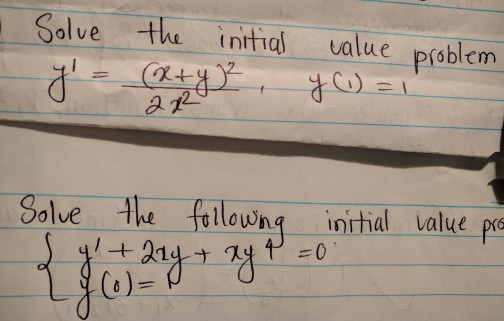 Solve the initial value problem
y' = (x+y)² / 2x² , y(1) = 1
Solve the following initial value
{ y' + 2xy + xy⁴ = 0
y(0) = 1